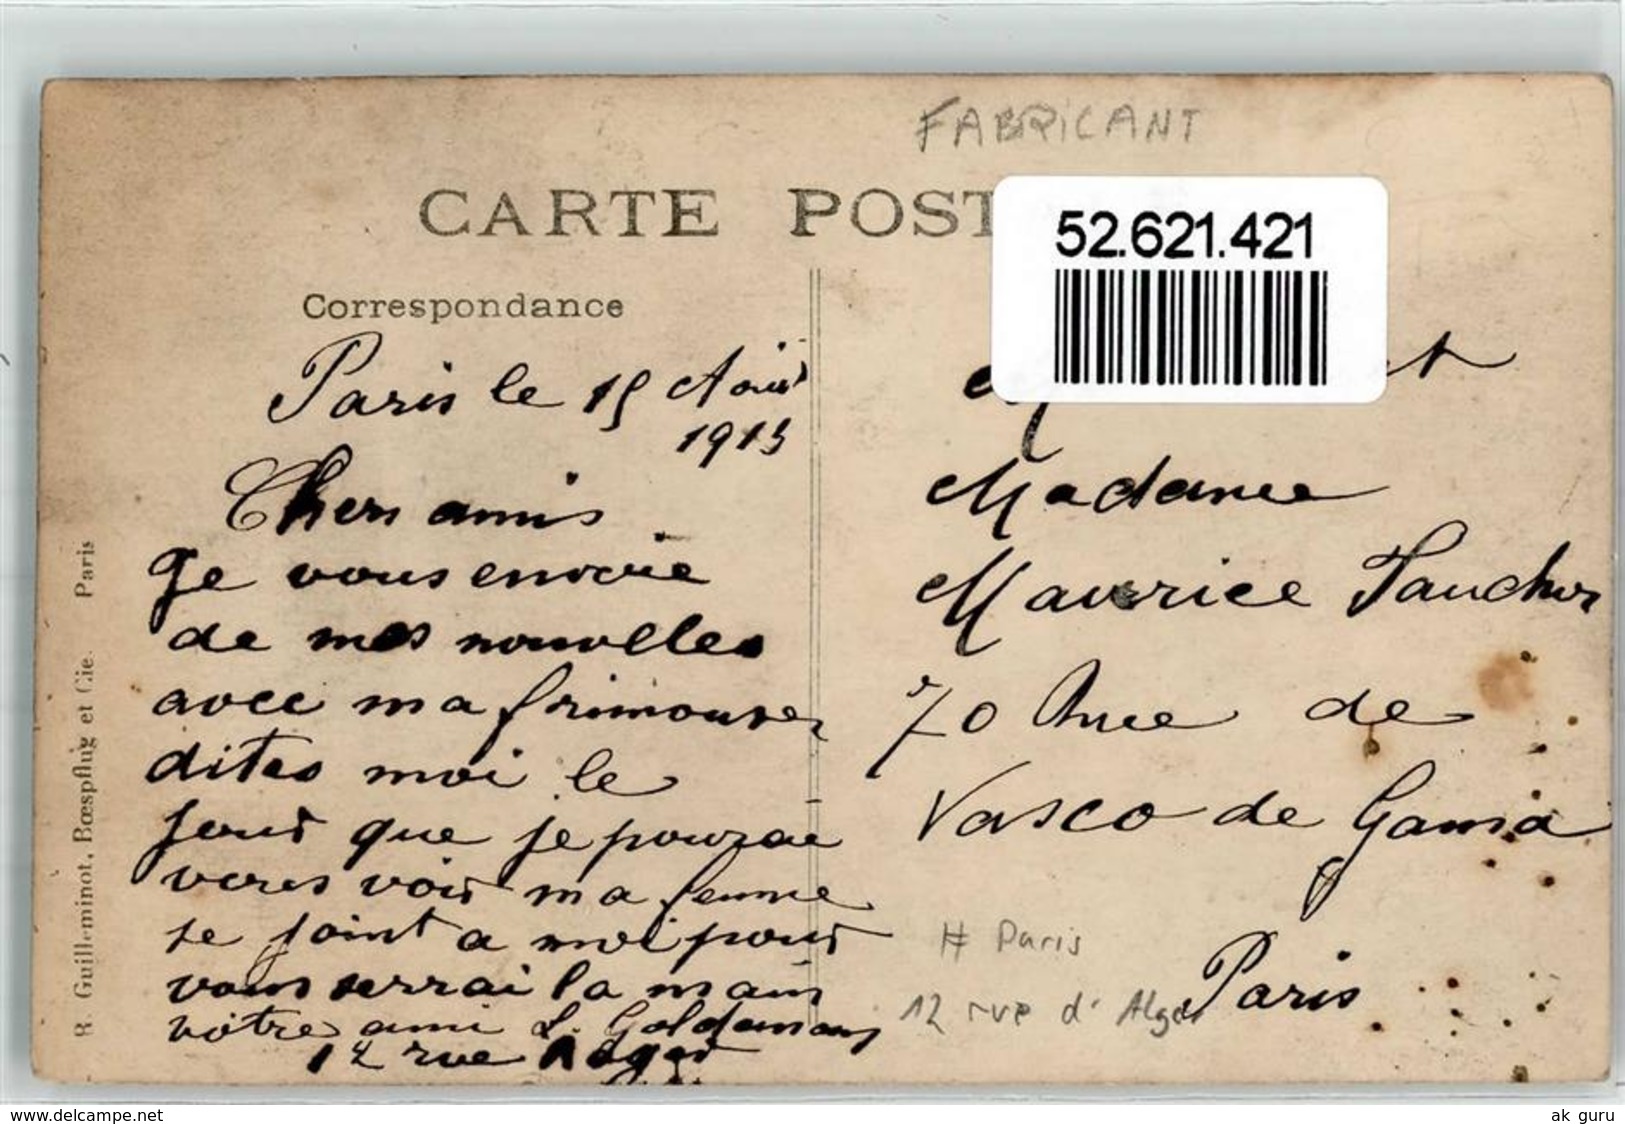 FABRICANT
CARTE POST
52.621.421
Correspondance
Paris le 15 Aout
1913
Chers amis
Je vous envoie
de mes nouvelles
avec ma frimousse
dites moi le
jour que je pourai
venir voir ma femme
se joint a moi pour
vous serrai la main
votre ami L. Goldemans
12 rue Alger
et
Madame
Maurice Faucheur
70 Rue de
Vasco de Gama
Paris
# Paris
12 rue d'Alger
R. Guilleminot, Bœspflug et Cie. Paris
www.delcampe.net
ak guru